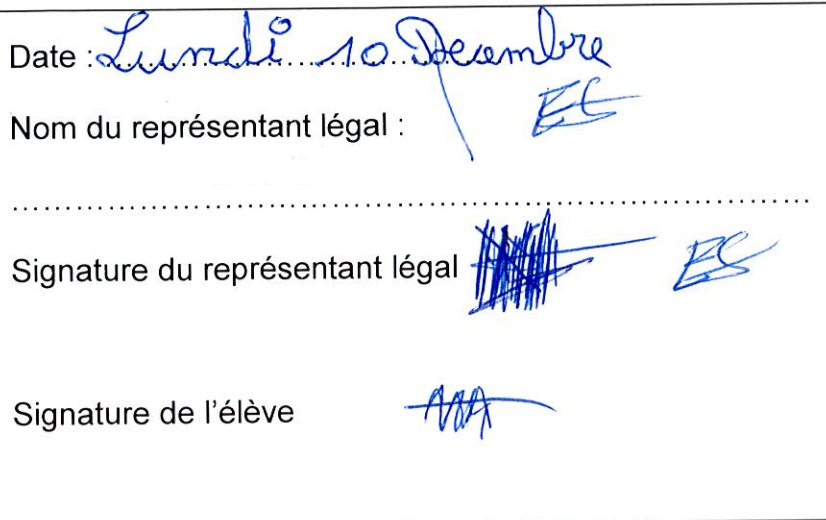 Date : Lundi 10 Decembre
Nom du représentant légal : ES
Signature du représentant légal ES
Signature de l'élève